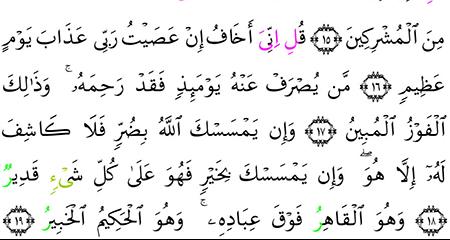 مِنَ ٱلْمُشْرِكِينَ ١٥ قُلِ اِنِّيَ أَخَافُ إِنْ عَصَيْتُ رَبِّى عَذَابَ يَوْمٍ
عَظِيمٍ ١٦ مَّن يُصْرَفْ عَنْهُ يَوْمَئِذٍ فَقَدْ رَحِمَهُۥ ۚ وَذَٰلِكَ
ٱلْفَوْزُ ٱلْمُبِينُ ١٧ وَإِن يَمْسَسْكَ ٱللَّهُ بِضُرٍّ فَلَا كَاشِفَ
لَهُۥٓ إِلَّا هُوَ ۖ وَإِن يَمْسَسْكَ بِخَيْرٍ فَهُوَ عَلَىٰ كُلِّ شَىْءٍ قَدِيرٌ
١٨ وَهُوَ ٱلْقَاهِرُ فَوْقَ عِبَادِهِۦ ۚ وَهُوَ ٱلْحَكِيمُ ٱلْخَبِيرُ ١٩